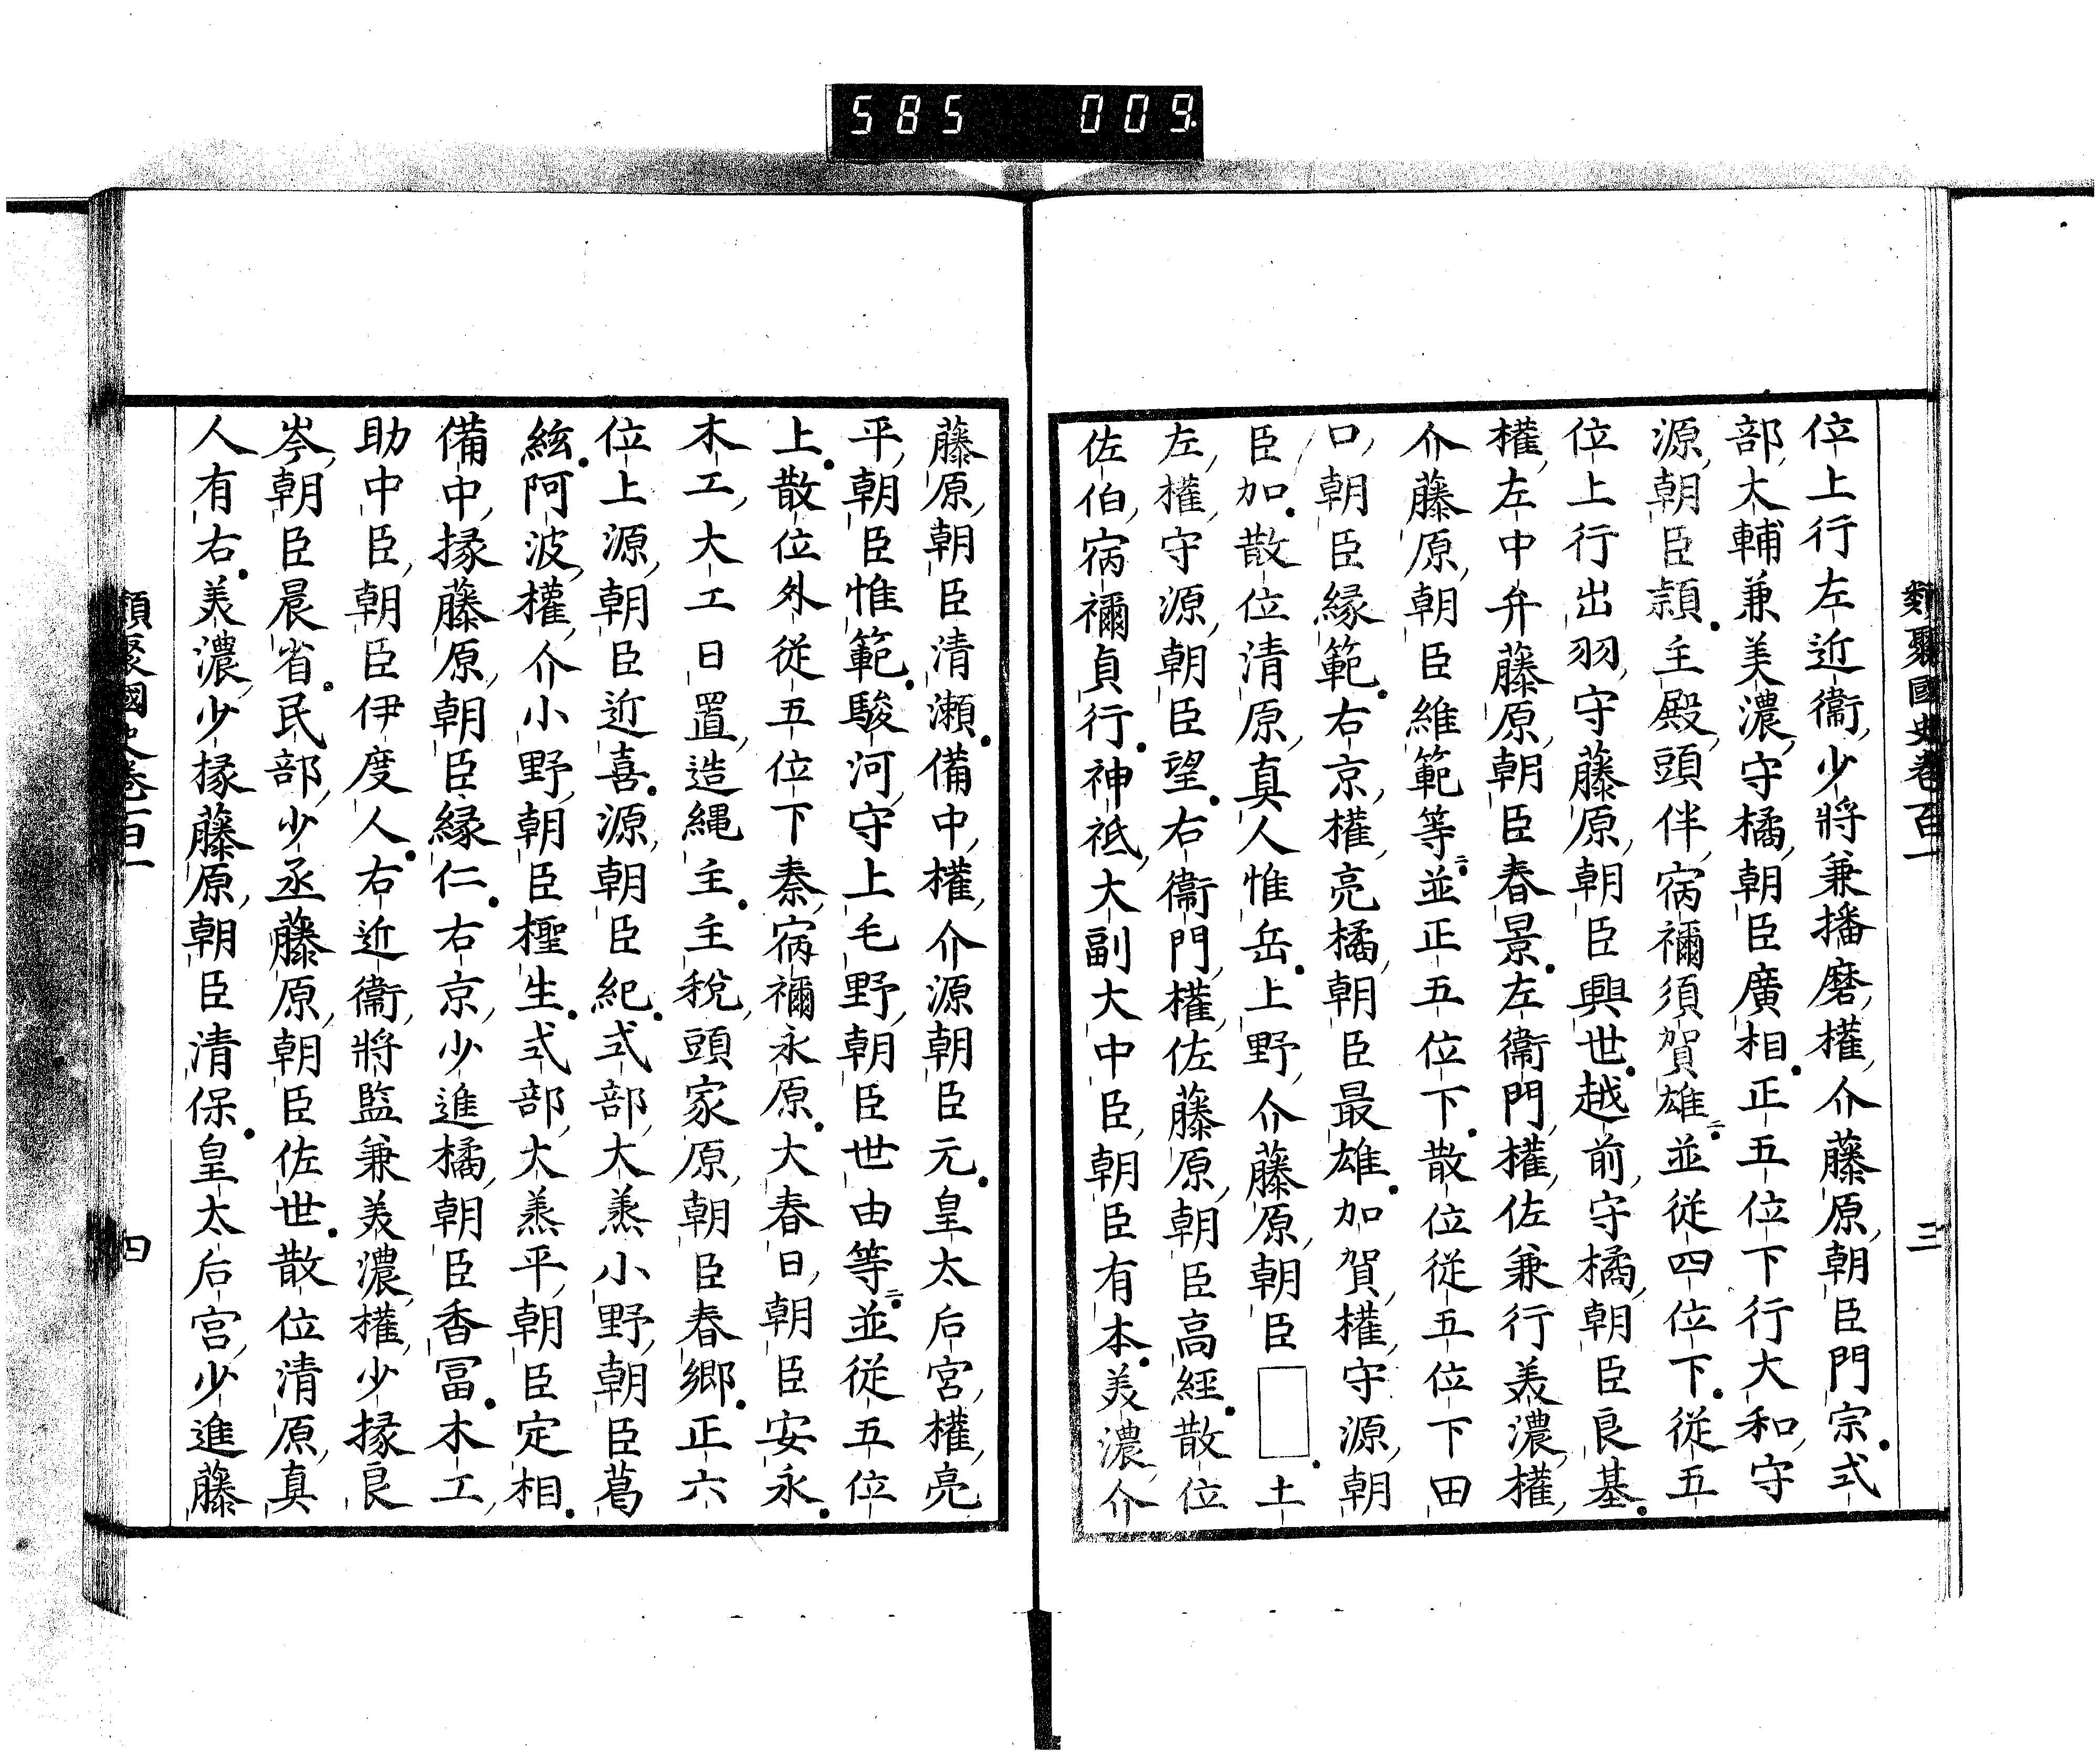 585 009
類聚國史卷百一 三
位上行左近衞少將兼播磨權介藤原朝臣門宗式
部大輔兼美濃守橘朝臣廣相正五位下行大和守
源朝臣頴主殿頭伴宿禰須賀雄並從四位下從五
位上行出羽守藤原朝臣興世越前守橘朝臣良基
權左中弁藤原朝臣春景左衞門權佐兼行美濃權
介藤原朝臣維範等並正五位下散位從五位下田
口朝臣緣範右京權亮橘朝臣最雄加賀權守源朝
臣加散位清原真人惟岳上野介藤原朝臣□土
左權守源朝臣望右衞門權佐藤原朝臣高經散位
佐伯宿禰貞行神祗大副大中臣朝臣有本美濃介
藤原朝臣清瀬備中權介源朝臣元皇太后宮權亮
平朝臣惟範駿河守上毛野朝臣世由等並從五位
上散位外從五位下秦宿禰永原大春日朝臣安永
木工大工日置造縄主主税頭家原朝臣春郷正六
位上源朝臣近喜源朝臣紀式部大烝小野朝臣葛
絃阿波權介小野朝臣檉生式部大烝平朝臣定相
備中掾藤原朝臣緣仁右京少進橘朝臣香冨木工
助中臣朝臣伊度人右近衞將監兼美濃權少掾良
岑朝臣晨省民部少丞藤原朝臣佐世散位清原真
人有右美濃少掾藤原朝臣清保皇太后宮少進藤
類聚國史卷百一 四